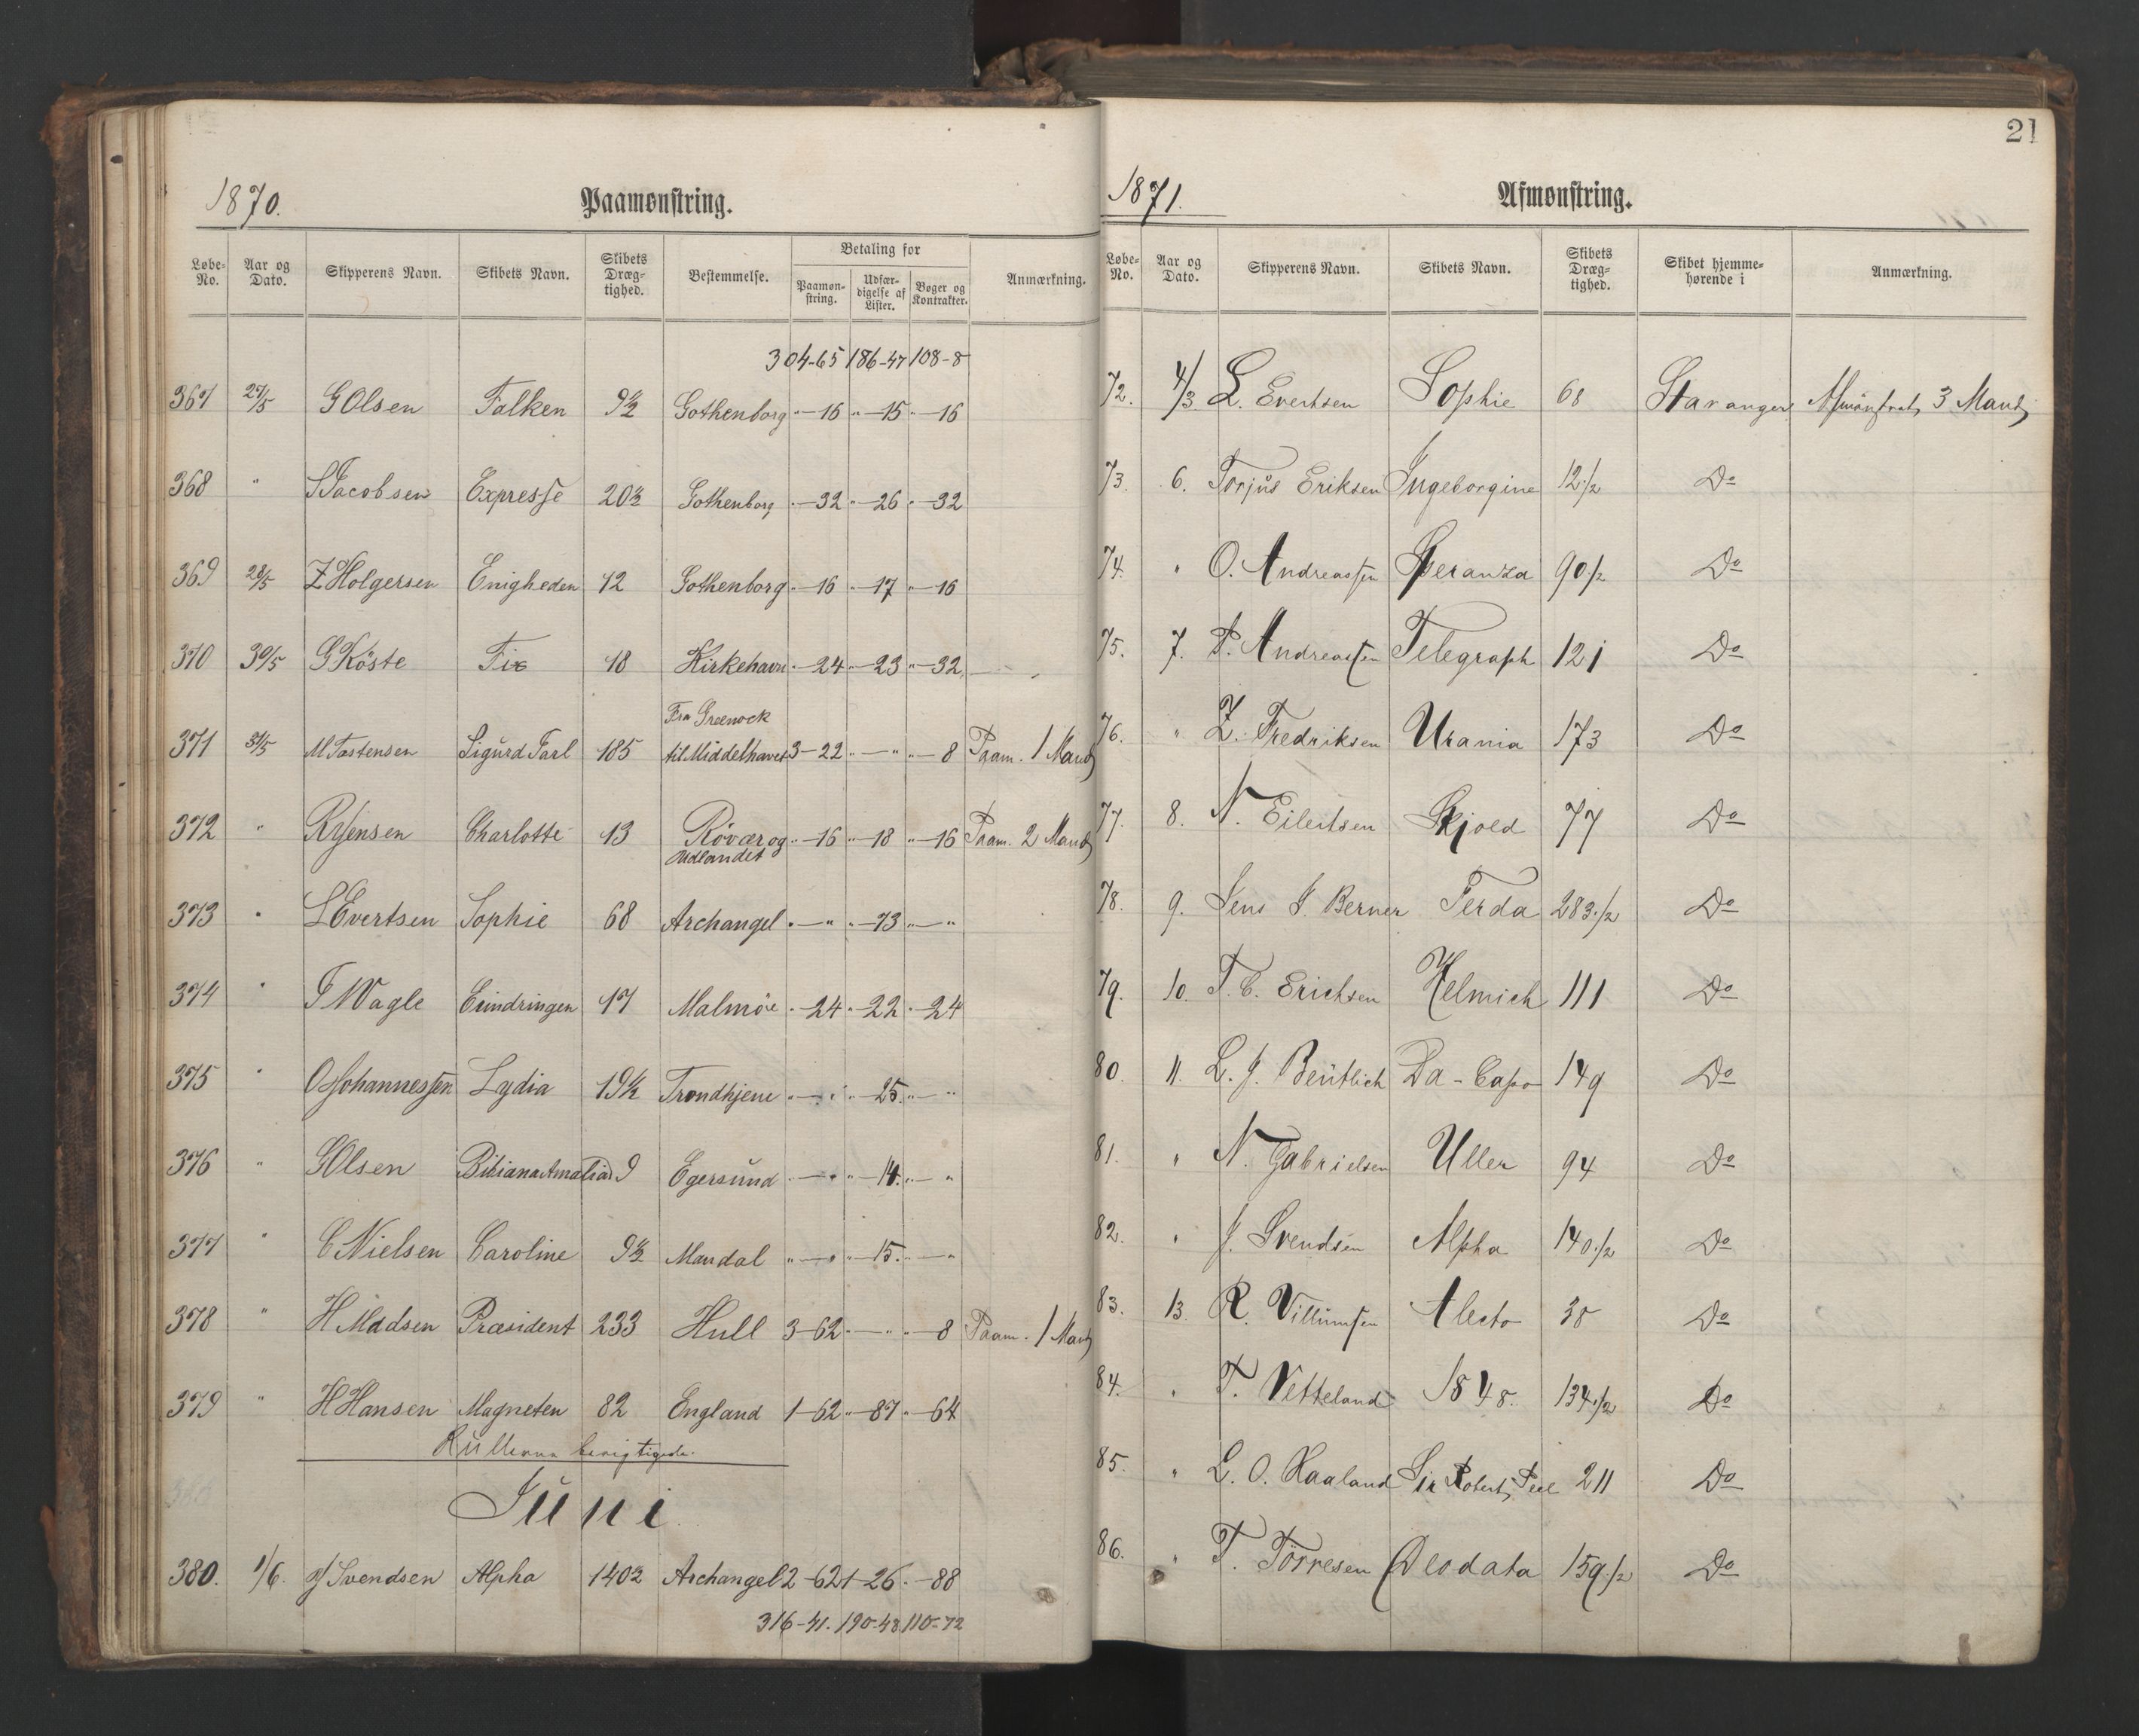 1870. Paamønstring.
Løbe-No. Aar og Dato. Skipperens Navn. Skibets Navn. Skibets Dræg-tighed. Bestemmelse. Betaling for Paamøn-string. Udfær-digelse af Lister. Bøger og Kontrakter. Anmærkning.
304-65 186-47 108-8
367 27/5 G Olsen Falken 9½ Gothenborg "-16 "-15 "-16
368 " S Jacobsen Expresse 20½ Gothenborg "-32 "-26 "-32
369 28/5 Z Holgersen Enigheden 12 Gothenborg "-16 "-17 "-16
370 30/5 G Köste Fix 18 Kirkehavn "-24 "-23 "-32
Fra Greenock
371 31/5 M. Tostensen Sigurd Jarl 185 til Middelhavet 3-22 "-" "-8 Paam. 1 Mand
372 " R Jensen Charlotte 13 Rövær og "-16 "-18 "-16 Paam. 2 Mand
Udlandet
373 " L Evertsen Sophie 68 Archangel "-" "-73 "-"
374 " J Wagle Eindringen 17 Malmöe "-24 "-22 "-24
375 " O Johannessen Lydia 19½ Trondhjem "-" "-25. "-"
376 " G Olsen Bibiana Amalia 9 Egersund "-" "-14. "-"
377 " C Nielsen Caroline 9½ Mandal "-" "-15. "-"
378 " H Madsen Præsident 233 Hull 3-62 "-" "-8 Paam. 1 Mand
379 " H Hansen Magneten 82 England 1-62 "-87 "-64
Rullerne berigtigede.
Juni
380. 1/6. J Svendsen Alpha 140½ Archangel 2-62 1-26. "-88
316-41. 190-48. 110-72
21
1871. Afmønstring.
Løbe-No. Aar og Dato. Skipperens Navn. Skibets Navn. Skibets Dræg-tighed. Skibet hjemme-hørende i Anmærkning.
72. 4/3 L. Evertsen Sophie 68 Stavanger Afmönstret 3 Mand
73. 6. Torjus Eriksen Ingeborgine 12½ Do
74. " O. Andreassen Speranza 90½ Do
75. 7. P. Andreassen Telegraph 121 Do
76. " Z. Fredriksen Urania 173 Do
77. 8. N. Eilertsen Skjold 77 Do
78. 9. Jens J. Berner Ferda 283½ Do
79. 10. T. C. Erichsen Helmich 111 Do
80. 11. L. J. Bentlich Da-Capo 149 Do
81. " N. Gabrielsen Uller 94 Do
82. " J. Svendsen Alpha 140½ Do
83. 13 R. Villumsen Alecto 38 Do
84. " T. Vetteland 1848. 134½ Do
85. " L. O. Haaland Sir Robert Peel 211 Do
86. " T. Törresen Deodata 159½ Do